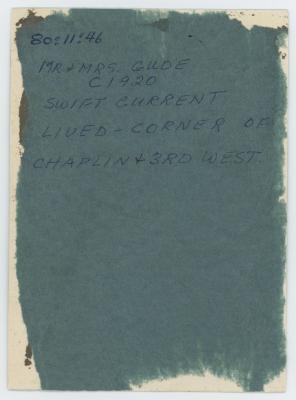 80:11:46
MR & MRS. GUDE
C1920
SWIFT CURRENT
LIVED - CORNER OF
CHAPLIN & 3RD WEST.